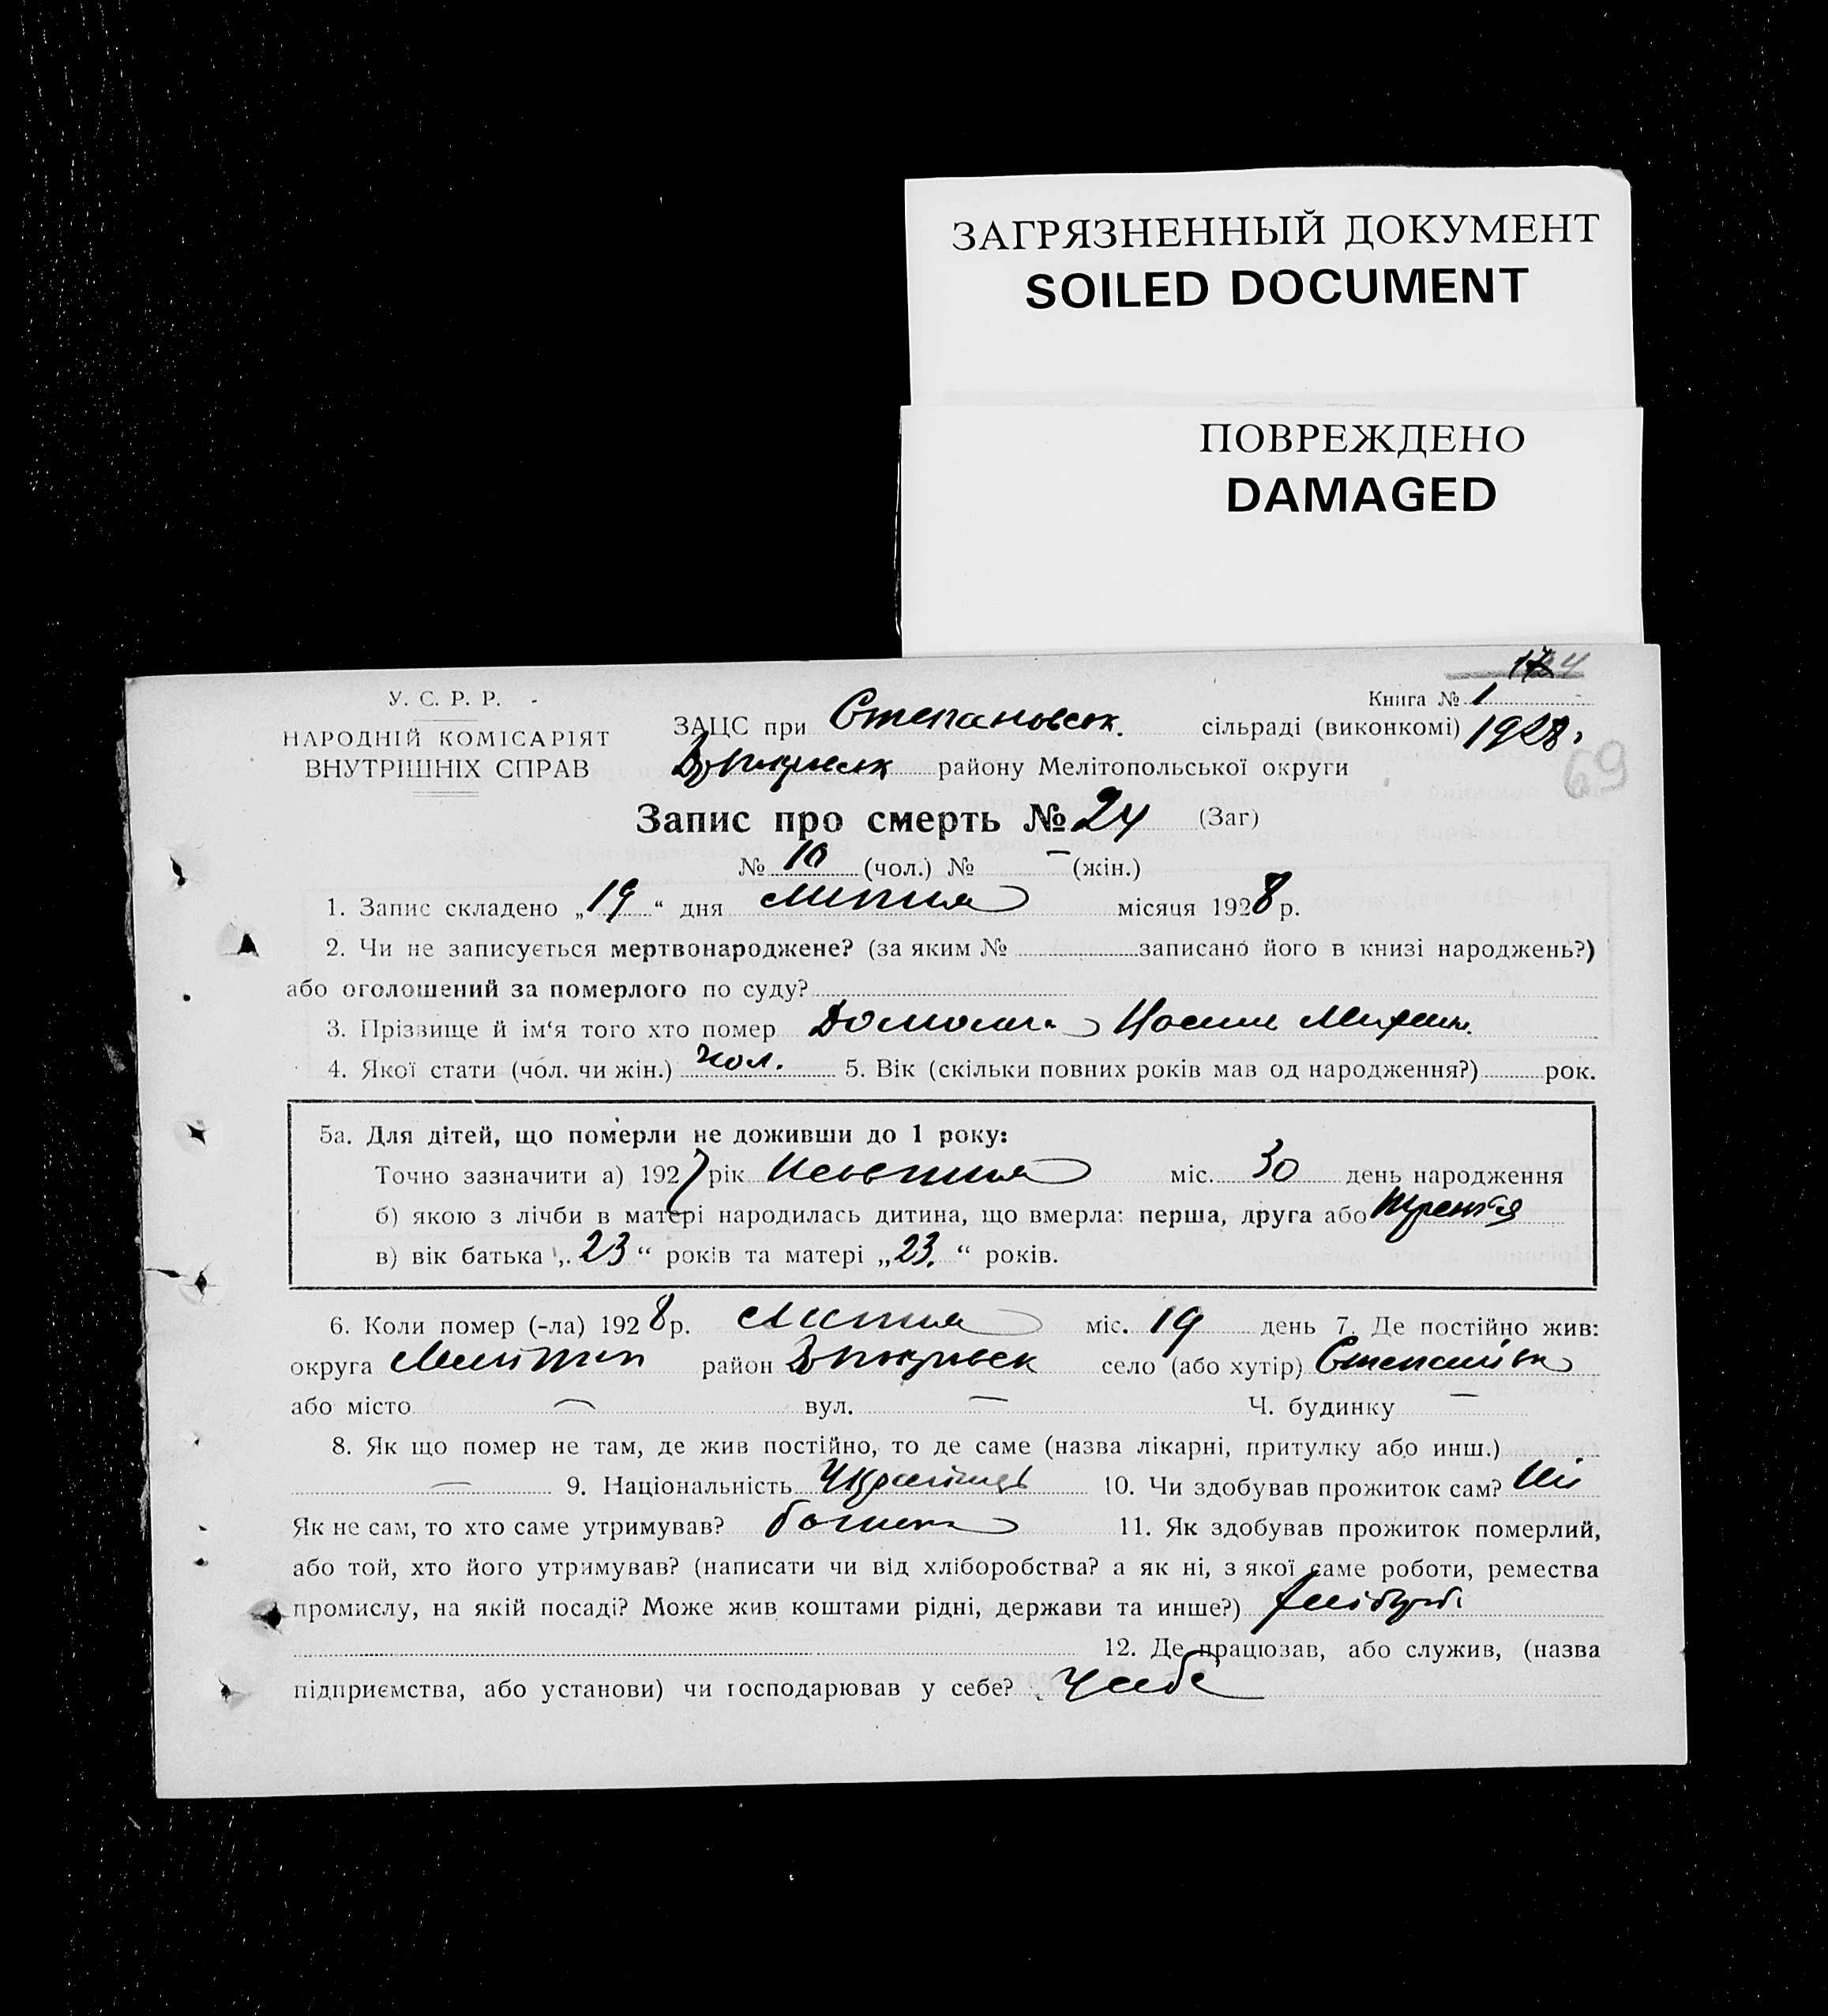 ЗАГРЯЗНЕННЫЙ ДОКУМЕНТ
SOILED DOCUMENT
ПОВРЕЖДЕНО
DAMAGED
У. С. Р. Р.
НАРОДНІЙ КОМІСАРІЯТ
ВНУТРІШНІХ СПРАВ
Книга № 1
ЗАЦС при Степановськ. сільраді (виконкомі) 1928 р
району Мелітопольської округи
69
Запис про смерть № 24 (Заг)
№ 10 (чол.) № — (жін.)
1. Запис складено „19“ дня липня місяця 1928 р.
2. Чи не записується мертвонароджене? (за яким № записано його в книзі народжень?)
або оголошений за померлого по суду?
3. Прізвище й ім‘я того хто помер
4. Якої стати (чол. чи жін.) чол. 5. Вік (скільки повних років мав од народження?) рок.
5а. Для дітей, що померли не доживши до 1 року:
Точно зазначити а) 1927 рік міс. 30 день народження
б) якою з лічби в матері народилась дитина, що вмерла: перша, друга або третя
в) вік батька „23“ років та матері „23.“ років.
6. Коли помер (-ла) 1928 р. Липня міс. 19 день 7. Де постійно жив:
округа Мелітоп район село (або хутір) Степанівк
або місто — вул. — Ч. будинку —
8. Як що помер не там, де жив постійно, то де саме (назва лікарні, притулку або инш.)
— 9. Національність Українець 10. Чи здобував прожиток сам? Ні
Як не сам, то хто саме утримував? батько 11. Як здобував прожиток померлий,
або той, хто його утримував? (написати чи від хліборобства? а як ні, з якої саме роботи, ремества
промислу, на якій посаді? Може жив коштами рідні, держави та инше?) хлібороб.
12. Де працював, або служив, (назва
підприємства, або установи) чи господарював у себе? У себе